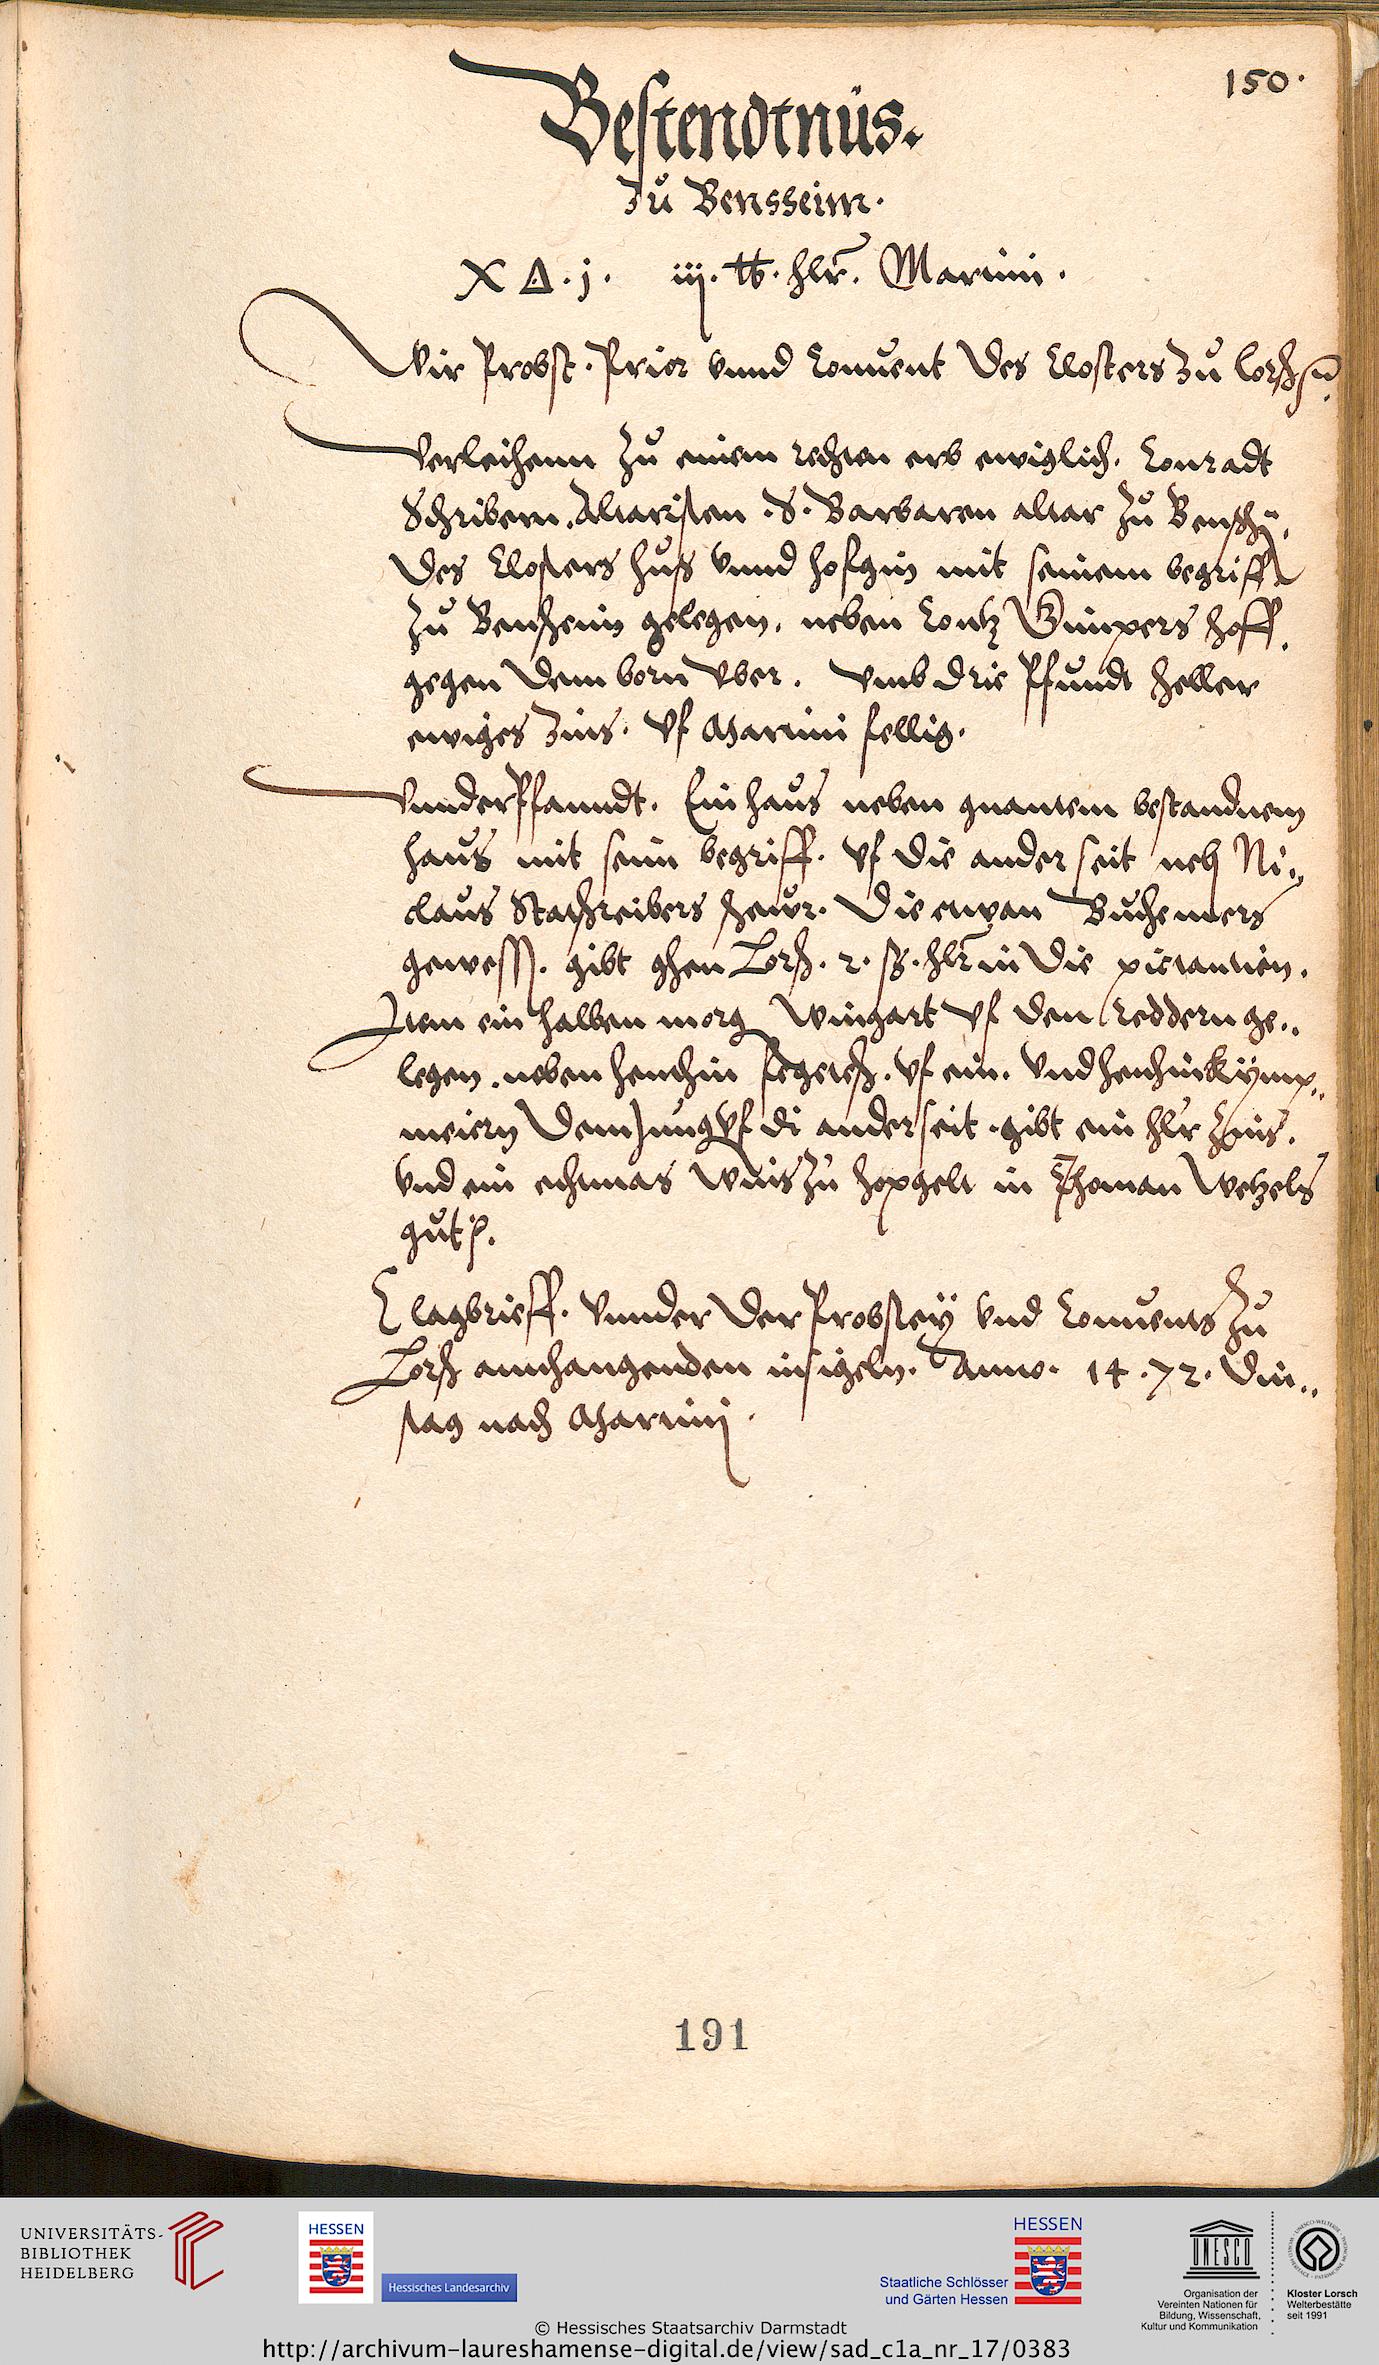 150.
Bestendtnus.
Zu Bensheim.
X Δ. j. iij. ℔. hlr. Martini.
Wir Probst. Prior vnnd Conuent des Closters zu Lorß
Verleihenn zu einem rechten erb ewiglich. Conradt
Schribern. Altaristen .S. Barbaren altar zu
des Closters huß vnnd hofgin mit seinem begriff
zu Benßheim gelegen. neben Contz hoff.
gegen dem born vber. vmb drie Pfundt heller
ewiges Zins. vf Martini fellig.
VnnderPfanndt. Ein haus neben gnantem bestandnem
haus mit seim begriff. vf die ander seit neb Ni..
claus die etwan
gewess. gibt ghen Lorß. 2. ß. hlr in die pictantien.
Item ein halben morg Wingart vf den reddern ge..
legen. neben henchin vf ein. vnd henchin
meiern dem Jung vf di ander seit. gibt ein hlr Zins.
vnd ein echtmas Wins zu in Thoman Wetzels
gut
Clagbrieff. vnnder der Probstey vnd Conuents zu
Lorß annhangenden insigeln. Anno. 14.72. Din..
stag nach Martinj.
191
UNIVERSITÄTS-
BIBLIOTHEK
HEIDELBERG
HESSEN
Hessisches Landesarchiv
HESSEN
Staatliche Schlösser
und Gärten Hessen
UNESCO
Organisation der
Vereinten Nationen für
Bildung, Wissenschaft,
Kultur und Kommunikation
Kloster Lorsch
Welterbestätte
seit 1991
© Hessisches Staatsarchiv Darmstadt
http://archivum-laureshamense-digital.de/view/sad_c1a_nr_17/0383